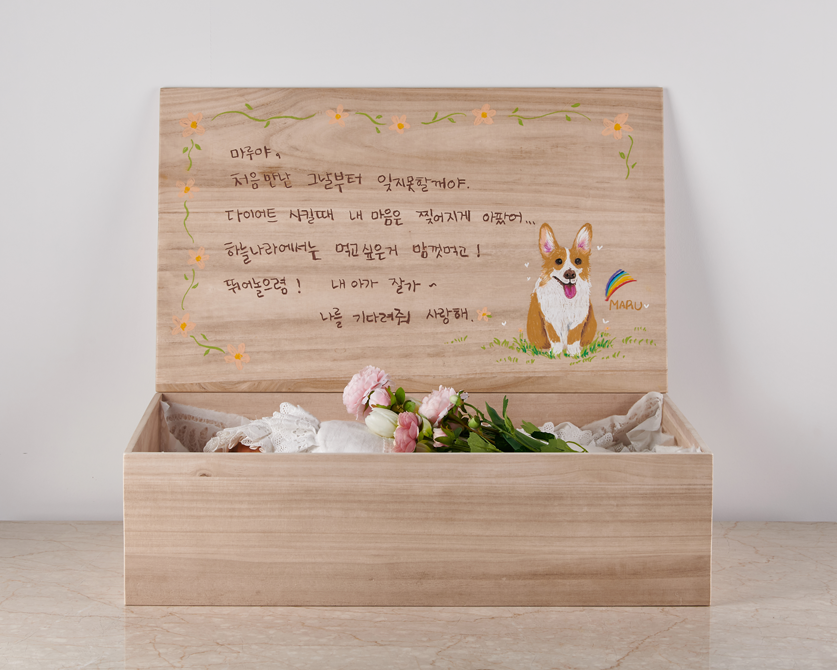 마루야,
처음 만난 그날부터 잊지못할꺼야.
다이어트 시킬때 내 마음은 찢어지게 아팠어...
하늘나라에서는 먹고싶은거 맘껏먹고!
뛰어놀으렴! 내 아가 잘가~
나를 기다려줘 사랑해.
MARU